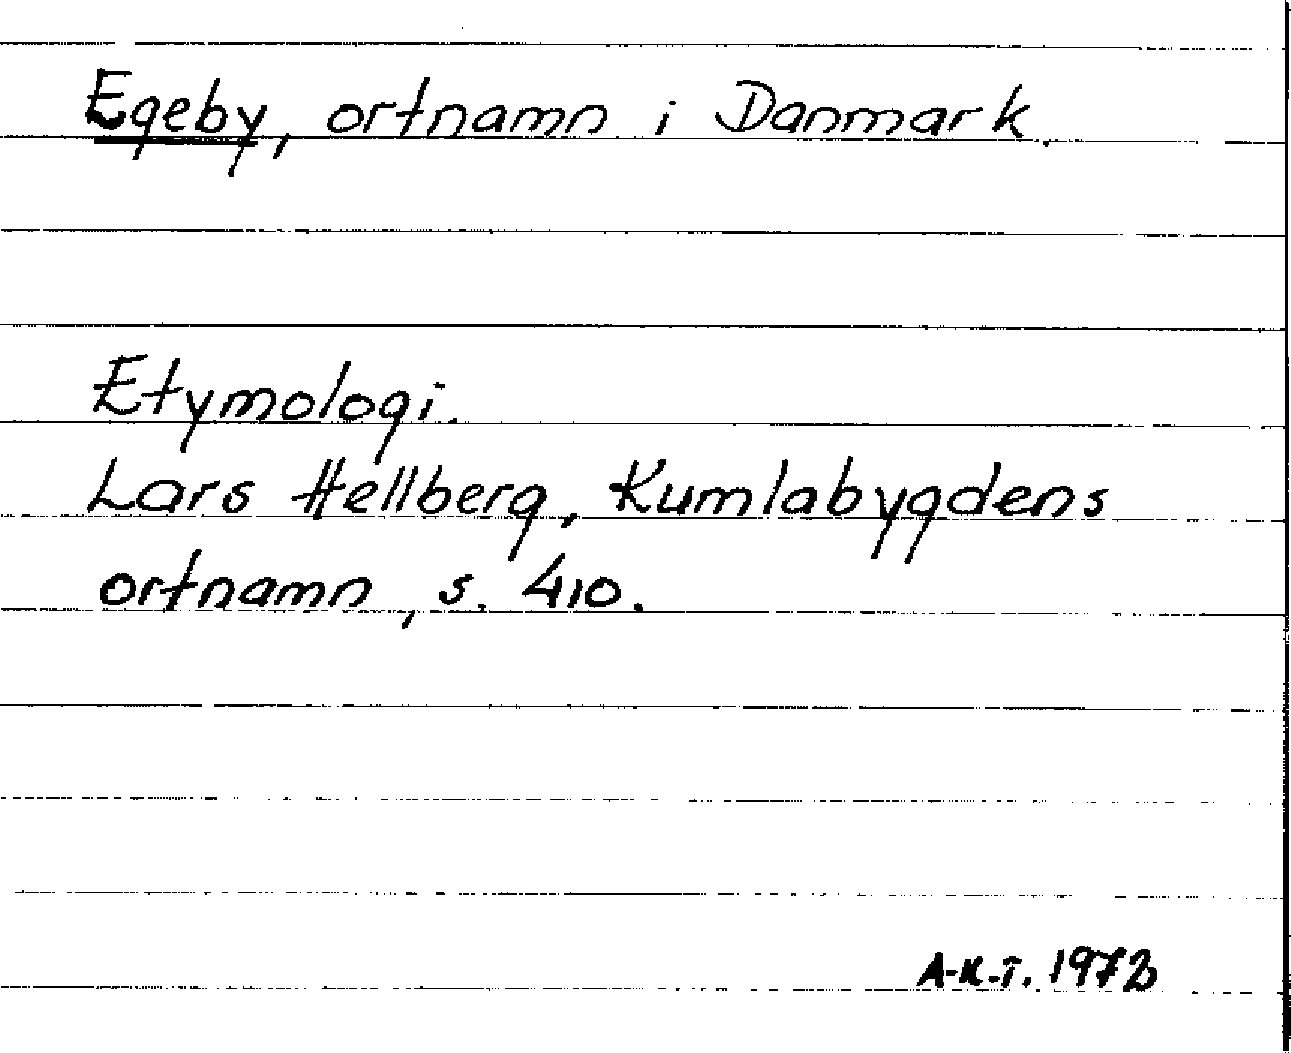 Egeby, ortnamn i Danmark.
Etymologi.
Lars Hellberg, Kumlabygdens
ortnamn, s. 410.
A-K.T. 1973